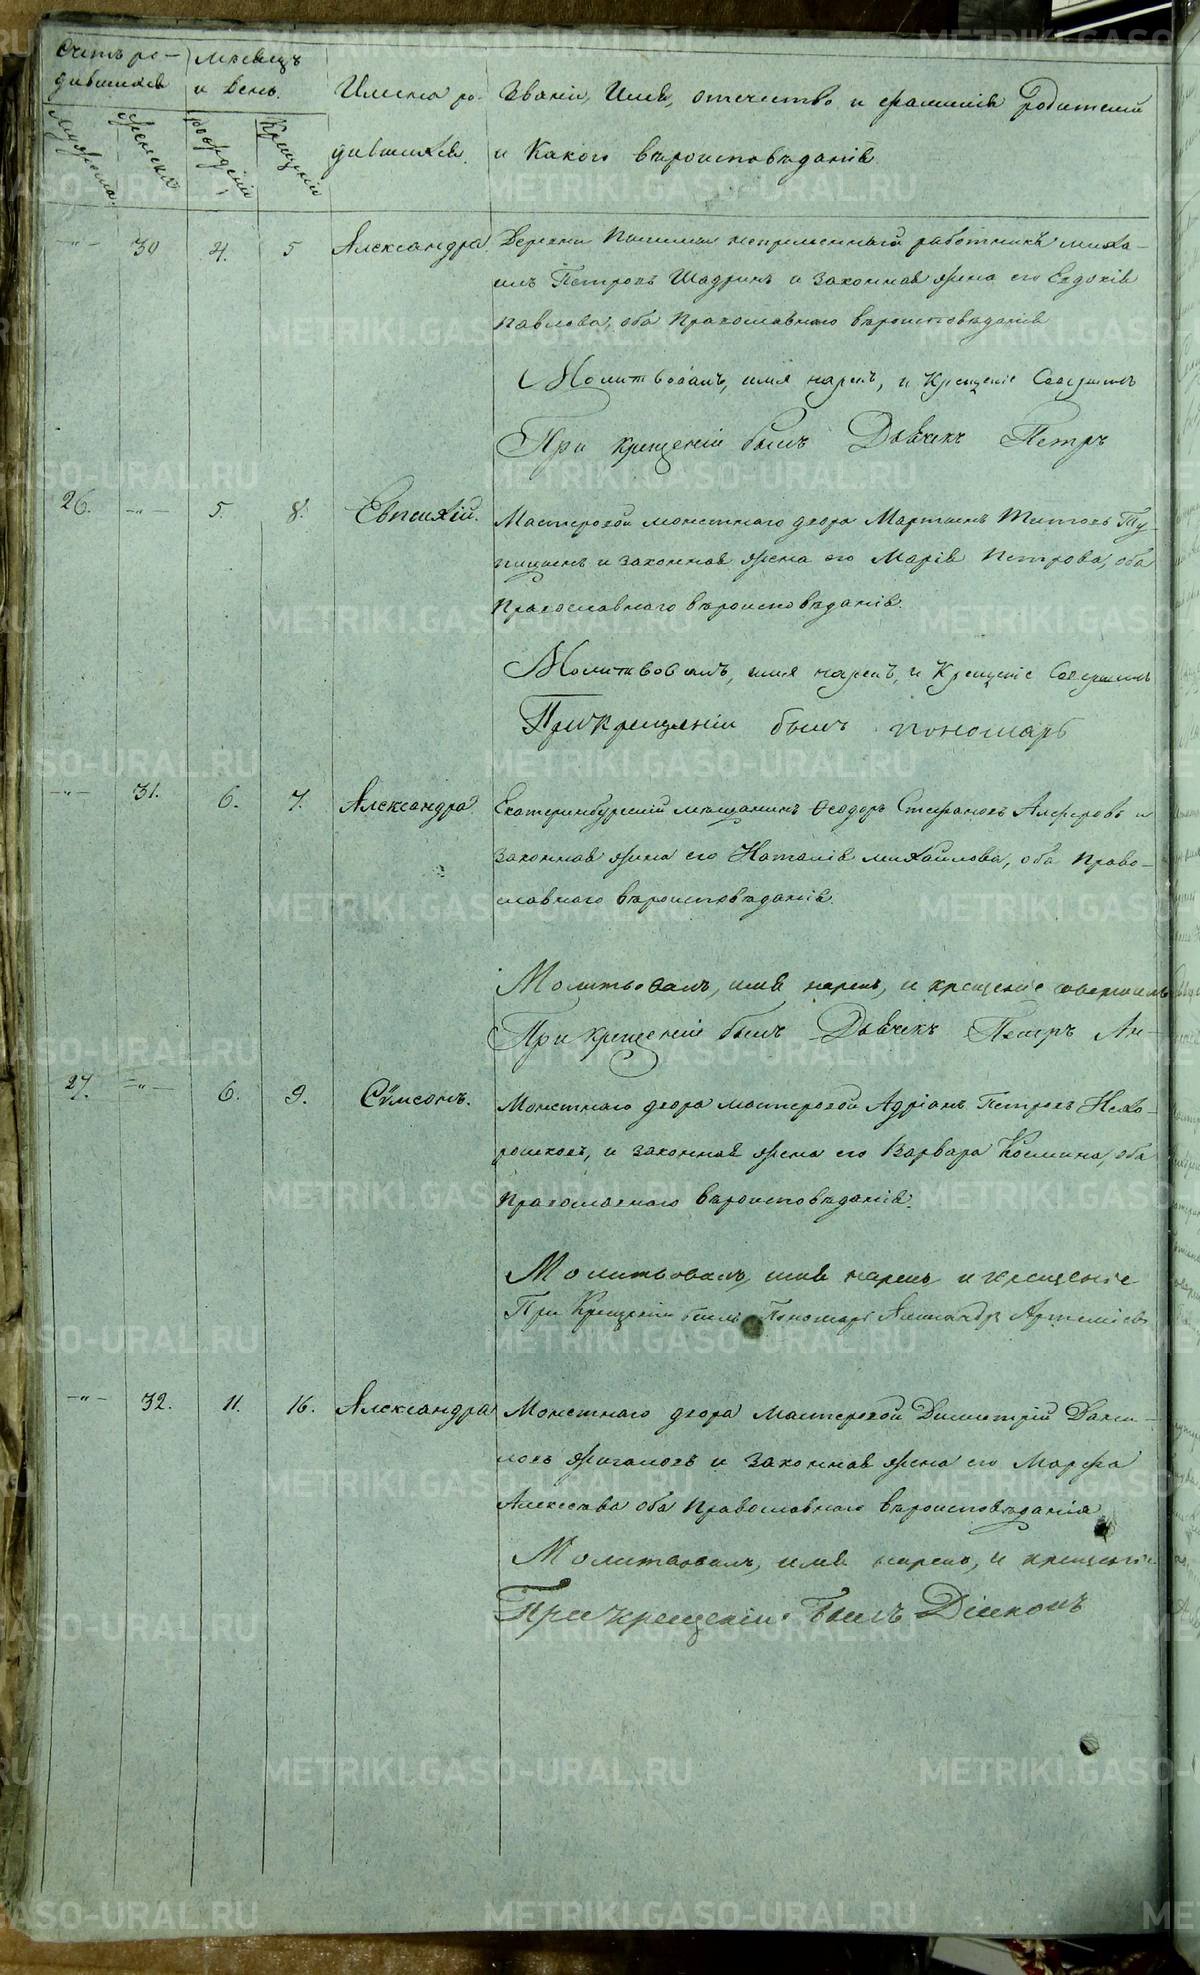 Счетъ ро-
дившихся
Мѣсяцъ
и День.
Имена ро-
дившихся.
Званіе, Имя, отечество и фамилія Родителей
и Какого вѣроисповѣданія
Мужеска.
Женска
рожденія
Крещенія
30 4. 5 Александра Деревни непременный работникъ Миха-
илъ Петровъ Шадринъ и Законная жена его Евдокія
Павлова, оба Православнаго вѣроисповѣданія
Молитвовалъ, имя нарекъ, и Крещеніе Совершилъ
При крещеніи былъ Дьячекъ Петръ
26. 5. 8. Евпсихій. Мастеровой монетнаго двора Мартинъ Титовъ Ту-
пицынъ и законная жена его Марія Петрова, оба
Православнаго вѣроисповѣданія.
Молитвовалъ, имя нарекъ, и Крещеніе Совершилъ
При крещеніи былъ пономарь
31. 6. 7. Александра Екатеринбургскій мѣщанинъ Ѳеодоръ Стефановъ Алферовъ и
Законная жена его Наталія Михайлова, оба Право-
славнаго вѣроисповѣданія.
Молитвовалъ, имя нарекъ, и крещеніе совершилъ
При крещеніи былъ Дьячекъ Петръ
27. 6. 9. Сѵмсонъ. Монетнаго двора мастеровой Адріанъ Петровъ Нехо-
рошковъ, и законная жена его Варвара Космина, оба
Православнаго вѣроисповѣданія.
Молитвовалъ, имя нарекъ и крещеніе
При Крещеніи былъ Пономарь Александръ Артемьевъ
32. 11. 16. Александра Монетнаго двора Мастеровой Димитрій Дани-
ловъ Жигаловъ и Законная жена его Марфа
Алексеева оба Православнаго вѣроисповѣданія
Молитвовалъ, имя нарекъ, и крещеніе
При крещеніи былъ Діаконъ
METRIKI.GASO-URAL.RU